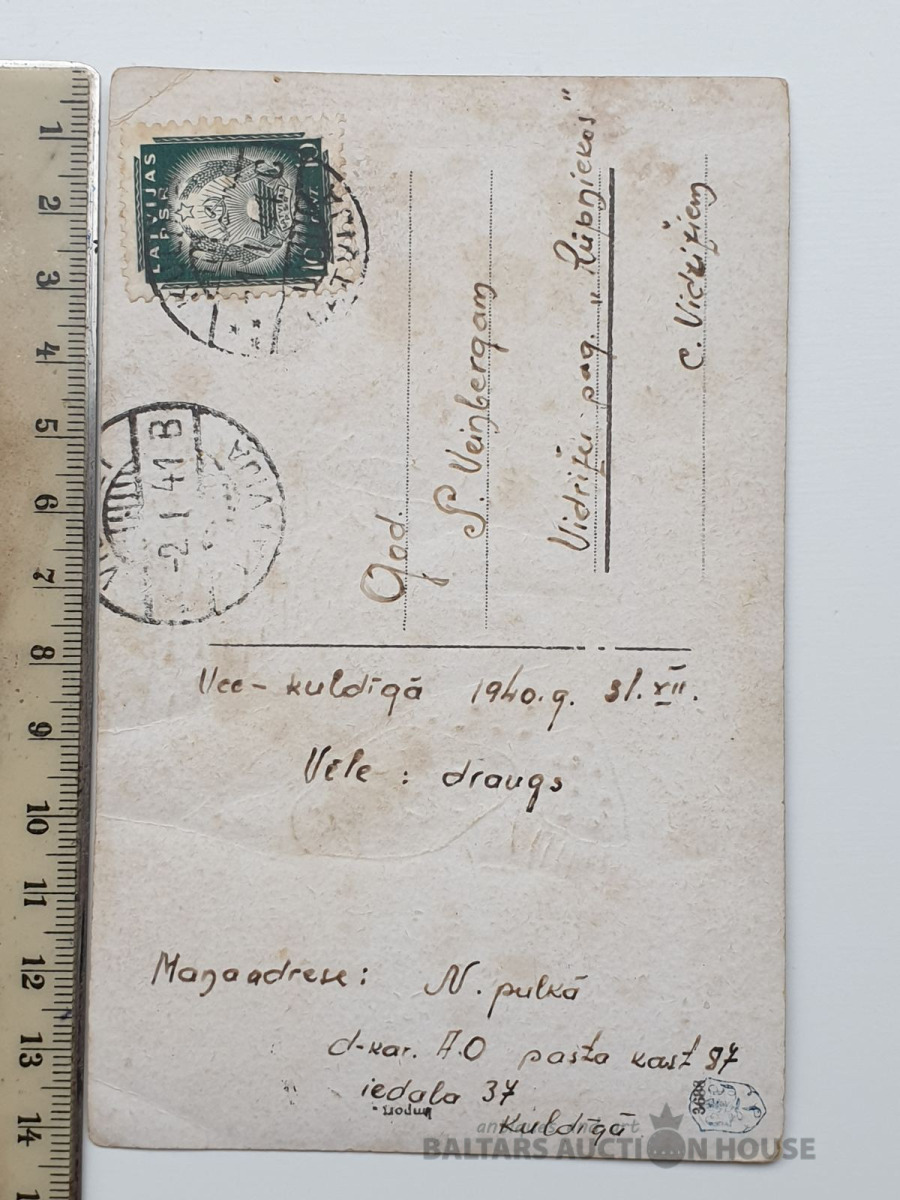 LATVIJAS
PSR
10
10
-2. I 41 B
God.
P. Veinbergam
Vidrižu pag. „Rūpnieкos"
c. Vidrižiem
Vec-kuldīgā 1940.g. 31.XII.
Vēle: draugs
Maņa adrese: N. pulkā
d-kar. A.O pasta kast 97
iedala 37
Kuldīgā
Import.
3688
BALTARS AUCTION HOUSE
1
2
3
4
5
6
7
8
9
10
11
12
13
14